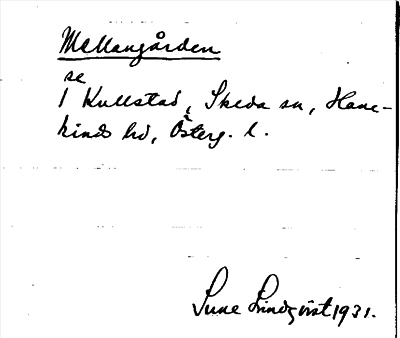 Mellangården
se
1 Kullstad, Skeda sn, Hane-
kinds hd, Österg. l.
Sune Lindqvist 1931.